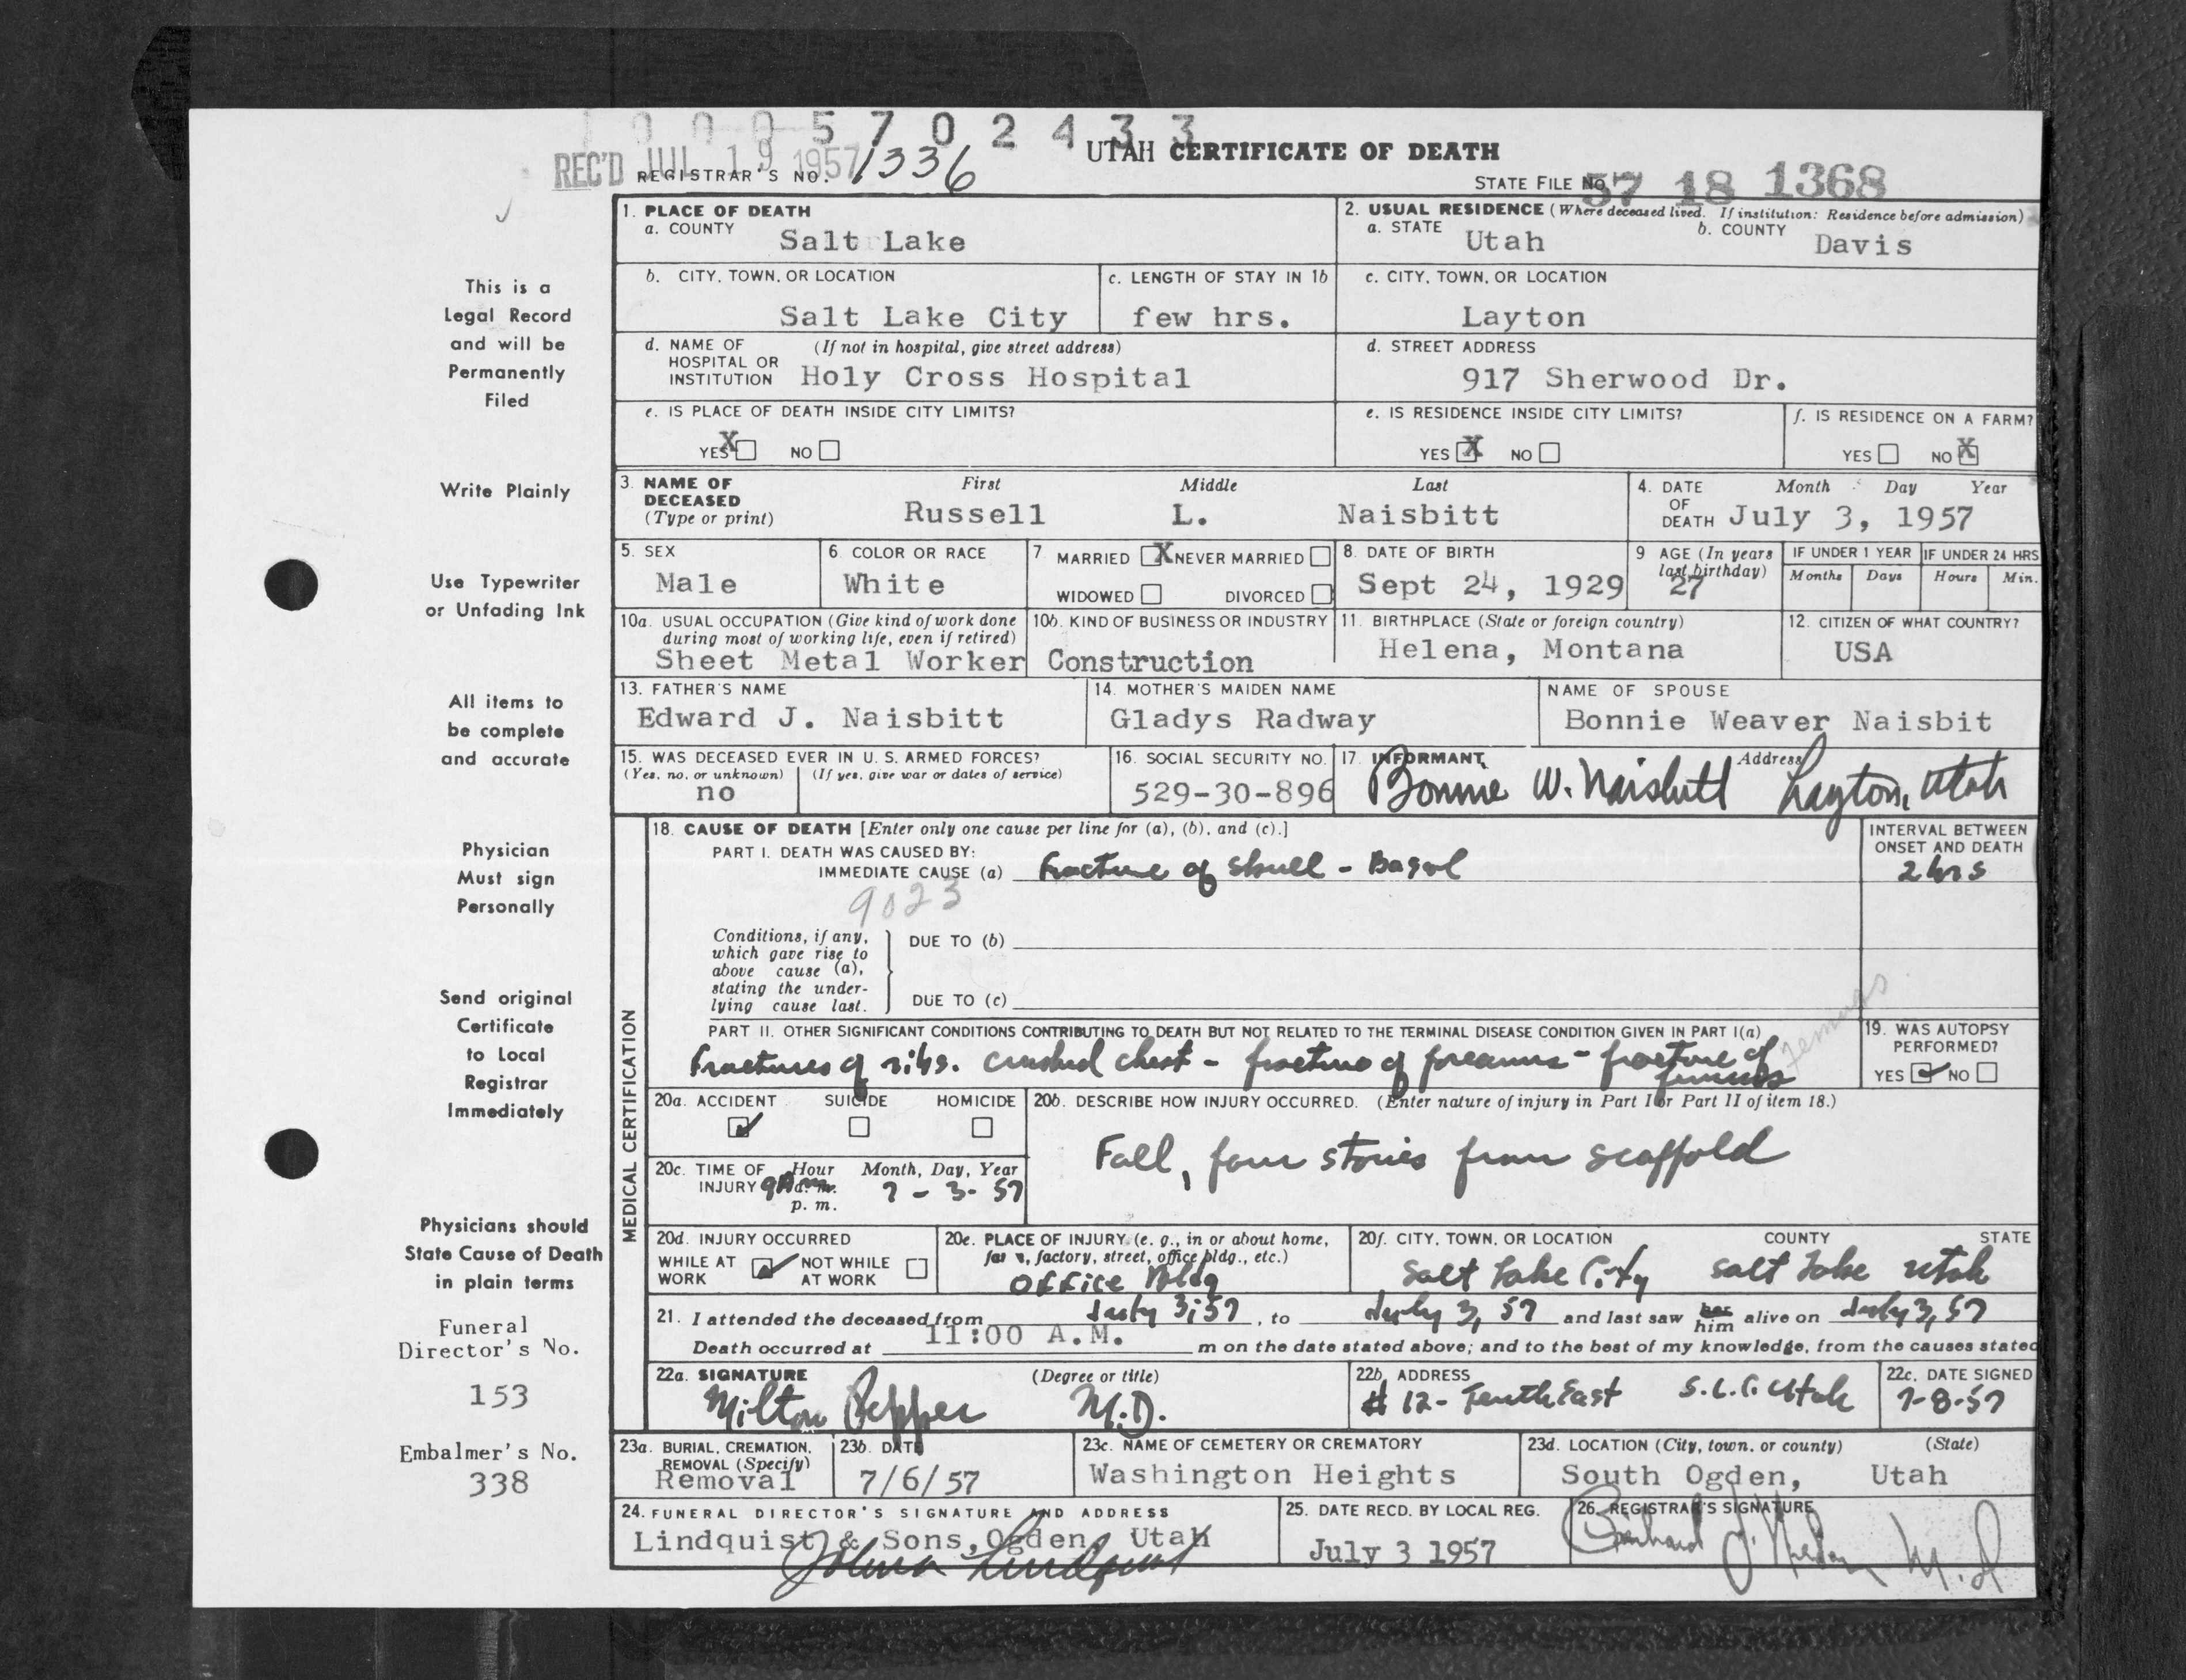 5 7 0 2 4 3 3
UTAH CERTIFICATE OF DEATH
REC'D JUL 19 1957
REGISTRAR'S NO. 1336
STATE FILE NO. 57 18 1368
This is a
Legal Record
and will be
Permanently
Filed
Write Plainly
Use Typewriter
or Unfading Ink
All items to
be complete
and accurate
Physician
Must sign
Personally
Send original
Certificate
to Local
Registrar
Immediately
Physicians should
State Cause of Death
in plain terms
Funeral
Director's No.
153
Embalmer's No.
338
1. PLACE OF DEATH
a. COUNTY Salt Lake
2. USUAL RESIDENCE (Where deceased lived. If institution: Residence before admission)
a. STATE Utah b. COUNTY Davis
b. CITY, TOWN, OR LOCATION
Salt Lake City
c. LENGTH OF STAY IN 1b
few hrs.
c. CITY, TOWN, OR LOCATION
Layton
d. NAME OF (If not in hospital, give street address)
HOSPITAL OR
INSTITUTION Holy Cross Hospital
d. STREET ADDRESS
917 Sherwood Dr.
e. IS PLACE OF DEATH INSIDE CITY LIMITS?
YES X NO
e. IS RESIDENCE INSIDE CITY LIMITS?
YES X NO
f. IS RESIDENCE ON A FARM?
YES NO X
3. NAME OF First Middle Last
DECEASED
(Type or print) Russell L. Naisbitt
4. DATE Month Day Year
OF
DEATH July 3, 1957
5. SEX
Male
6. COLOR OR RACE
White
7. MARRIED X NEVER MARRIED
WIDOWED DIVORCED
8. DATE OF BIRTH
Sept 24, 1929
9 AGE (In years
last birthday)
27
IF UNDER 1 YEAR
Months Days
IF UNDER 24 HRS
Hours Min.
10a. USUAL OCCUPATION (Give kind of work done
during most of working life, even if retired)
Sheet Metal Worker
10b. KIND OF BUSINESS OR INDUSTRY
Construction
11. BIRTHPLACE (State or foreign country)
Helena, Montana
12. CITIZEN OF WHAT COUNTRY?
USA
13. FATHER'S NAME
Edward J. Naisbitt
14. MOTHER'S MAIDEN NAME
Gladys Radway
NAME OF SPOUSE
Bonnie Weaver Naisbit
15. WAS DECEASED EVER IN U. S. ARMED FORCES?
(Yes, no, or unknown) (If yes, give war or dates of service)
no
16. SOCIAL SECURITY NO.
529-30-896
17. INFORMANT Address
Bonnie W. Naisbitt Layton, Utah
MEDICAL CERTIFICATION
18. CAUSE OF DEATH [Enter only one cause per line for (a), (b), and (c).]
PART I. DEATH WAS CAUSED BY:
IMMEDIATE CAUSE (a) Fracture of skull - Basal
9023
INTERVAL BETWEEN
ONSET AND DEATH
2 hrs
Conditions, if any,
which gave rise to
above cause (a),
stating the under-
lying cause last.
DUE TO (b)
DUE TO (c)
PART II. OTHER SIGNIFICANT CONDITIONS CONTRIBUTING TO DEATH BUT NOT RELATED TO THE TERMINAL DISEASE CONDITION GIVEN IN PART I(a)
Fractures of ribs. crushed chest - fracture of forearms - fracture of
19. WAS AUTOPSY
PERFORMED?
YES ✓ NO
20a. ACCIDENT SUICIDE HOMICIDE
✓
20b. DESCRIBE HOW INJURY OCCURRED. (Enter nature of injury in Part I or Part II of item 18.)
Fall, four stories from scaffold
20c. TIME OF Hour Month, Day, Year
INJURY 9 A m a. m. 7 - 3 - 57
p. m.
20d. INJURY OCCURRED
WHILE AT WORK ✓ NOT WHILE AT WORK
20e. PLACE OF INJURY (e. g., in or about home,
farm, factory, street, office bldg., etc.)
Office Bldg
20f. CITY, TOWN, OR LOCATION COUNTY STATE
Salt Lake City Salt Lake Utah
21. I attended the deceased from July 3, 57, to July 3, 57 and last saw her him alive on July 3, 57
Death occurred at 11:00 A.M. m on the date stated above; and to the best of my knowledge, from the causes stated
22a. SIGNATURE (Degree or title)
Milton Pepper M.D.
22b. ADDRESS
# 12 - Tenth East S.L.C. Utah
22c. DATE SIGNED
7-8-57
23a. BURIAL, CREMATION,
REMOVAL (Specify)
Removal
23b. DATE
7/6/57
23c. NAME OF CEMETERY OR CREMATORY
Washington Heights
23d. LOCATION (City, town, or county) (State)
South Ogden, Utah
24. FUNERAL DIRECTOR'S SIGNATURE AND ADDRESS
Lindquist & Sons, Ogden, Utah
25. DATE RECD. BY LOCAL REG.
July 3 1957
26. REGISTRAR'S SIGNATURE
M.D.